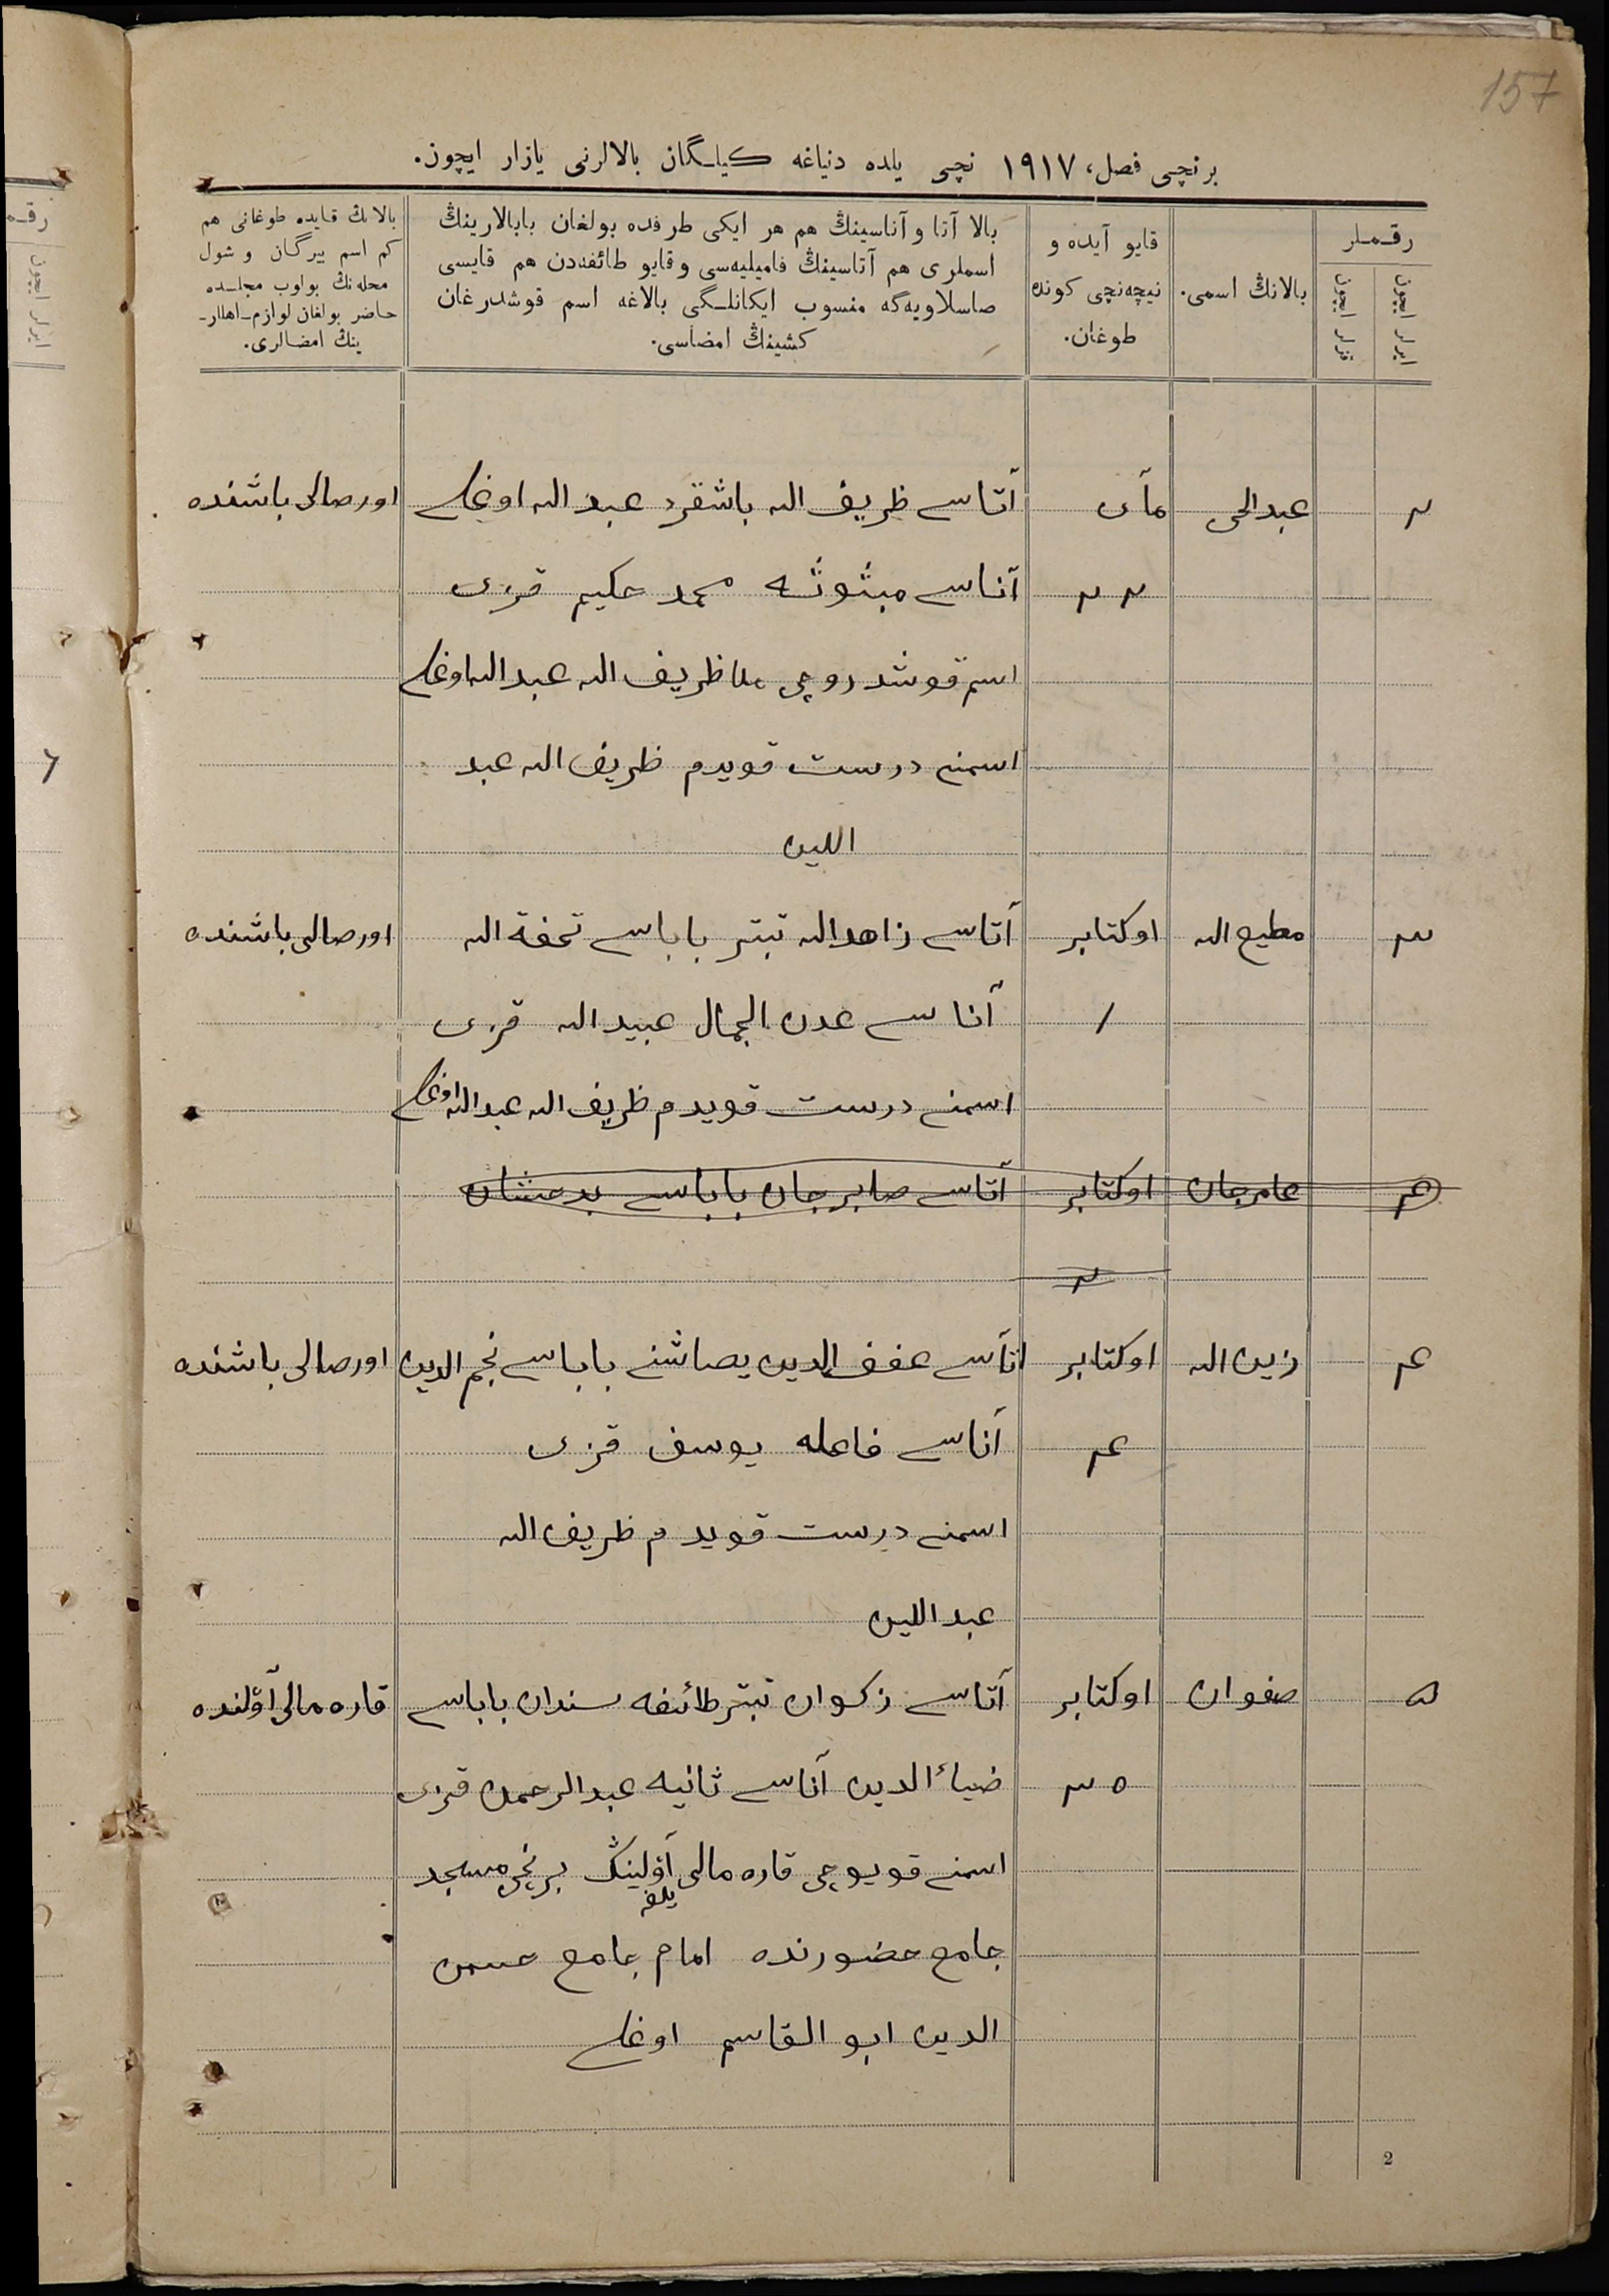 157
برنچی فصل، ١٩١٧ نچی یلده دنیاغه کیلگان بالالرنی یازار ایچون.
رقملر
ایرلر ایچون
قزلر ایچون
بالانڭ اسمی.
قایو آیده و
نیچه‌نچی کونده
طوغان.
بالا آتا و آناسینڭ هم هر ایکی طرفده بولغان بابالارینڭ
اسملری هم آتاسینڭ فامیلیه‌سی و قایو طائفه‌دن هم قایسی
صاسلاویه‌گه منسوب ایکانلگی بالاغه اسم قوشدرغان
کشینڭ امضاسی.
بالانڭ قایده طوغانی هم
کم اسم بیرگان و شول
محله‌نڭ بولوب مجلسده
حاضر بولغان لوازم اهللر
ینڭ امضالری.
٢ عبدالحی مآی آتاسی ظریف الله باشقرد عبد الله اوغلی اورصالی باشنده
٢٢ آناسی مبثوثه محمد حکیم قزی
اسم قوشدروچی ملا ظریف الله عبد الله اوغلی
اسمنی درست قویدم ظریف الله عبد
اللین
٣ مطیع الله اوکتابر آتاسی زاهدالله تبتر باباسی تحفة الله اورصالی باشنده
١ آناسی عدن الجمال عبید الله قزی
اسمنی درست قویدم ظریف الله عبدالله اوغلی
٤ عامرجان اوکتابر آتاسی صابرجان باباسی بدعشان
٢
٤ زین الله اوکتابر اتاسی عفف الدین یصاشنی باباسی نجم الدین اورصالی باشنده
٤ آناسی فاعله یوسف قزی
اسمنی درست قویدم ظریف الله
عبد اللین
٥ صفوان اوکتابر آتاسی زکوان تبتر طائفه سندان باباسی قاره مالی آولنده
٣٥ ضیاءالدین آناسی ثانیه عبدالرحمن قزی
اسمنی قویوچی قاره مالی آولینڭ برنچی مسجد
جامع حضورنده امام جامع حسن
الدین ابو القاسم اوغلی
2
رقم
ایرلر ایچون